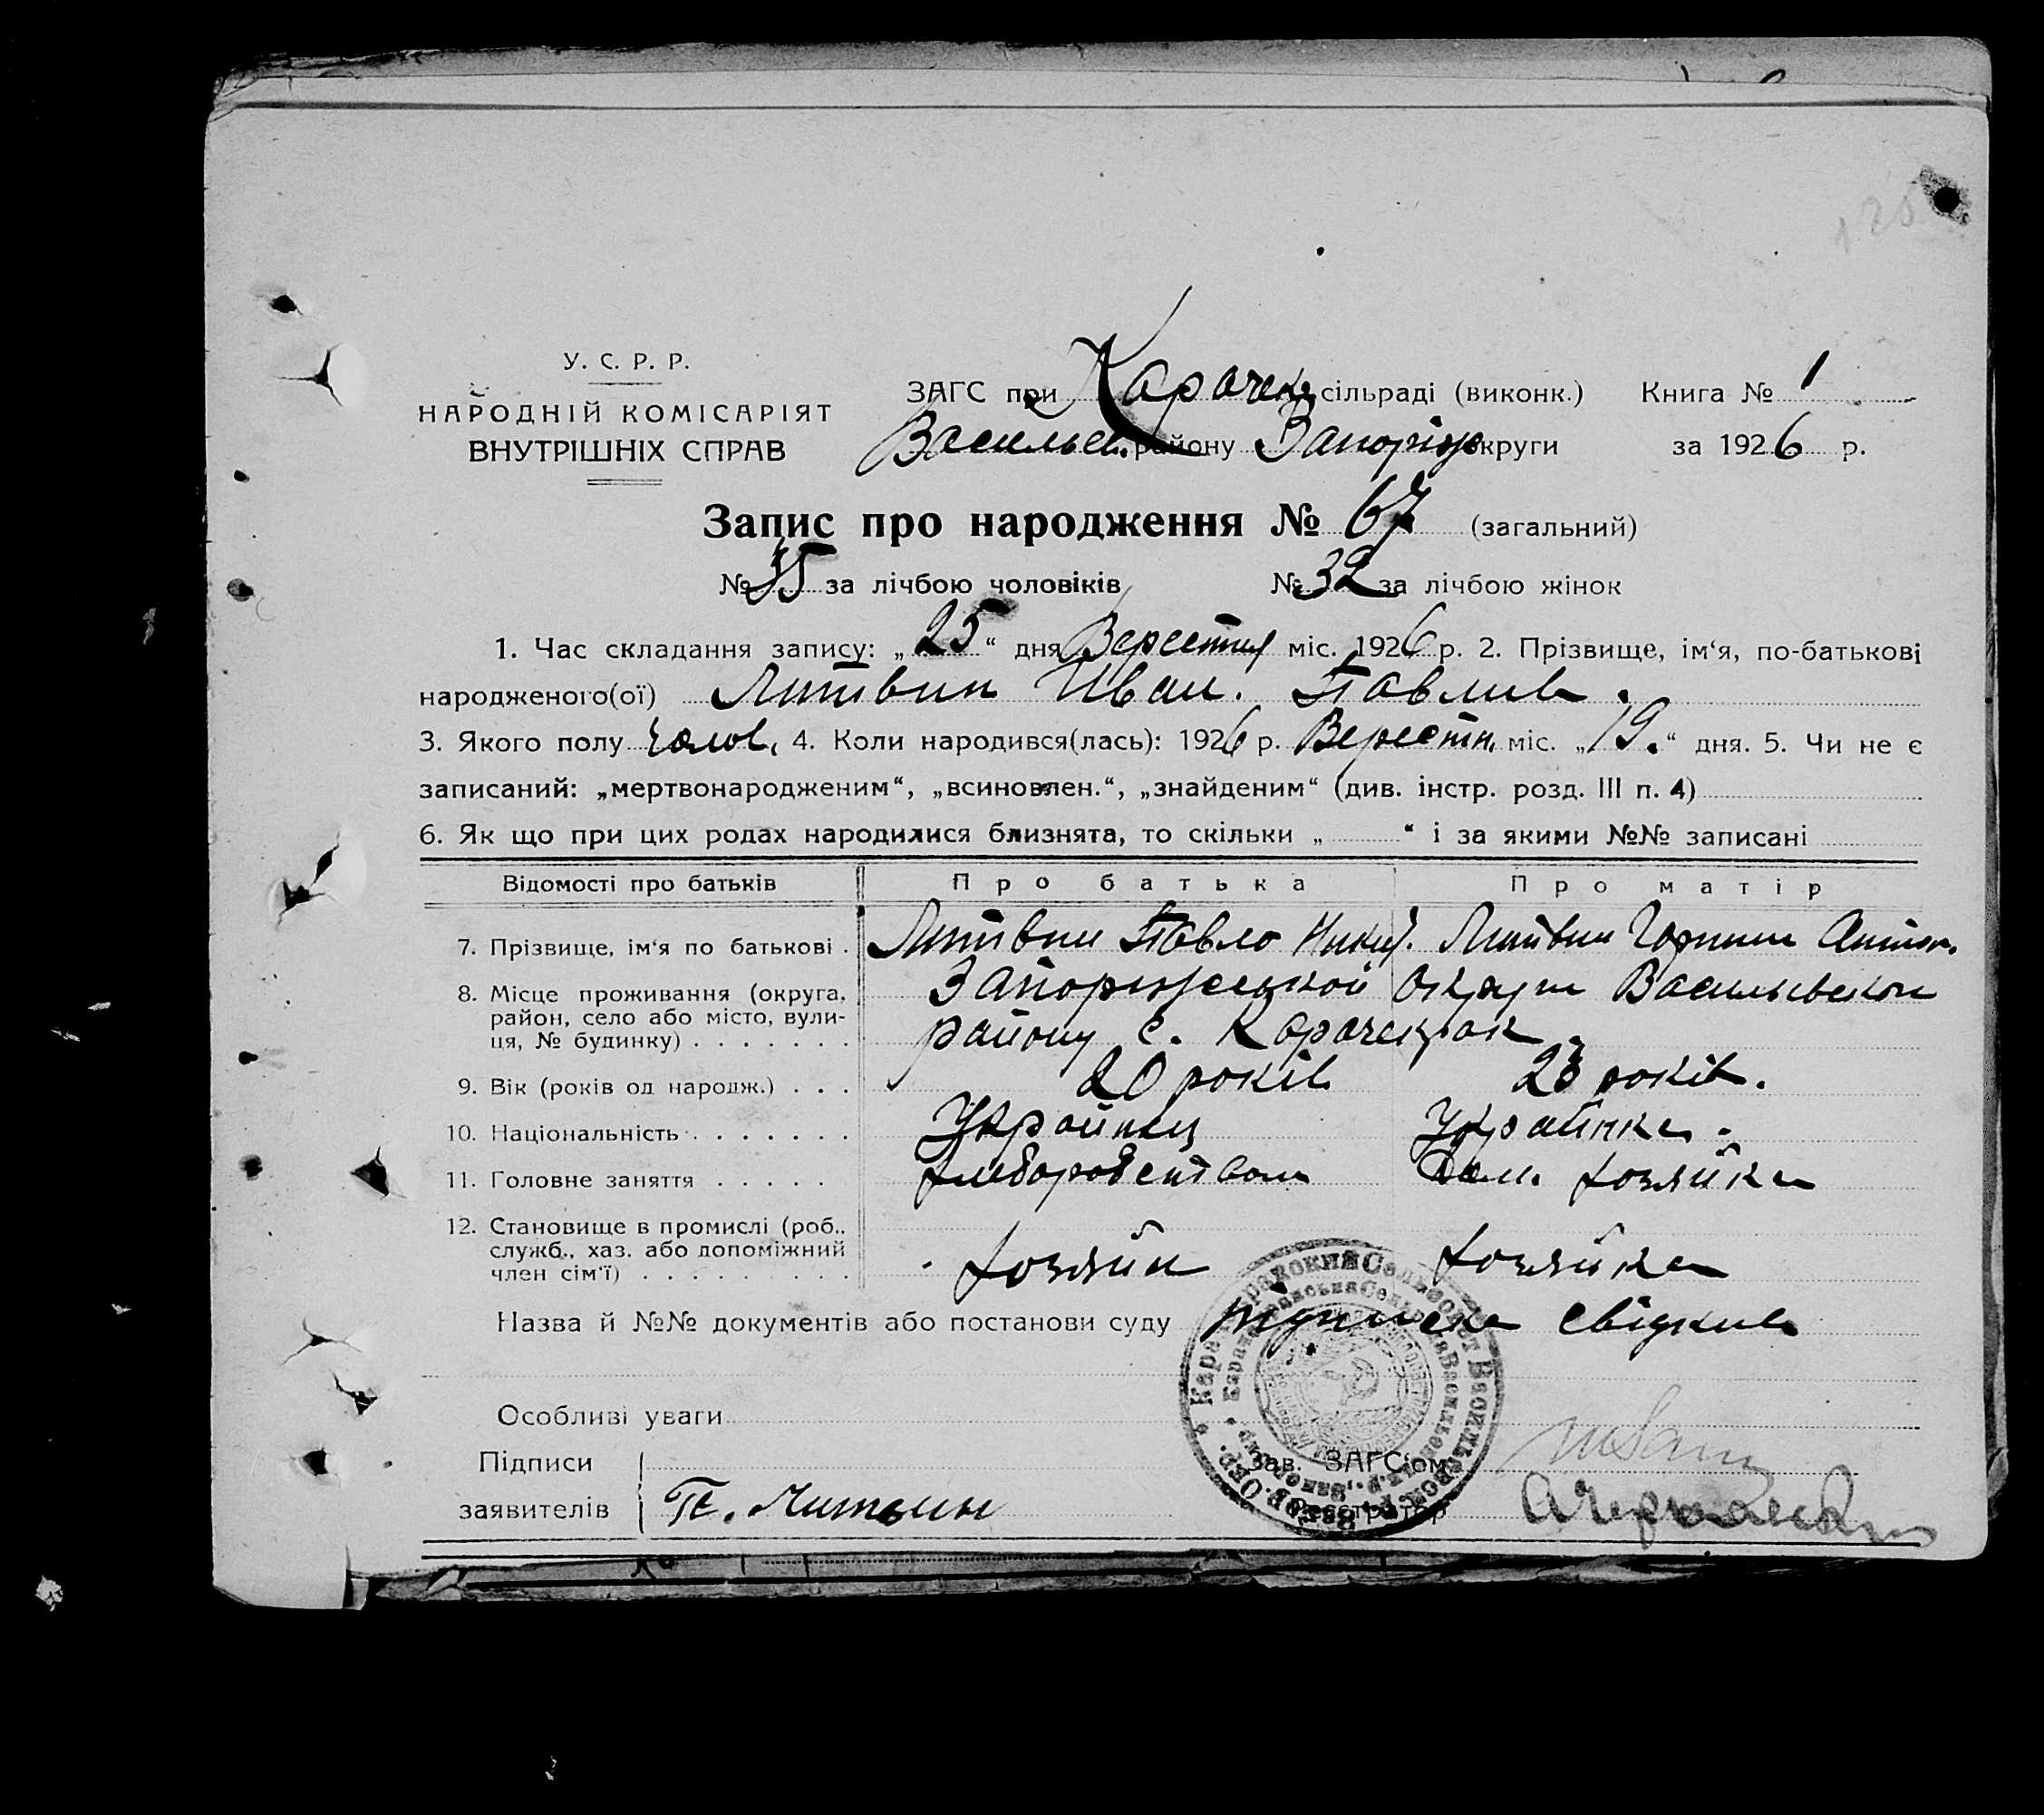 У. С. Р. Р.
НАРОДНІЙ КОМІСАРІЯТ
ВНУТРІШНІХ СПРАВ
ЗАГС при Карачек. сільраді (виконк.) Книга № 1
Васильев. району Запоріж округи за 1926 р.
Запис про народження № 67 (загальний)
№ 35 за лічбою чоловіків № 32 за лічбою жінок
1. Час складання запису: „25“ дня Верестня міс. 1926 р. 2. Прізвище, ім‘я, по-батькові
народженого(ої) Литвин Иван. Павлив.
3. Якого полу чолов. 4. Коли народився(лась): 1926 р. Верестн. міс. „19.“ дня. 5. Чи не є
записаний: „мертвонародженим“, „всиновлен.“, „знайденим“ (див. інстр. розд. III п. 4)
6. Як що при цих родах народилися близнята, то скільки „ “ і за якими №№ записані
Відомості про батьків Про батька Про матір
7. Прізвище, ім‘я по батькові . Литвин Павло Никит. Литвин Горпина Антон.
8. Місце проживання (округа, район, село або місто, вули-
ця, № будинку) . . . . . . . Запорижськой округи Васильевскои
району с. Карачекрак.
9. Вік (років од народж.) . . . 20 років 23 років.
10. Національність . . . . . . . Украйнец Украінка.
11. Головне заняття . . . . . хлеборобством Дом. хозяйка
12. Становище в промислі (роб.. служб., хаз. або допоміжний
член сім‘ї) . . . . . . . . . хозяйн хозяйка
Назва й №№ документів або постанови суду підписка свідкив
Особливі уваги
Підписи
заявителів П. Литвин
Зав. ЗАГС‘ом
Реєстратор